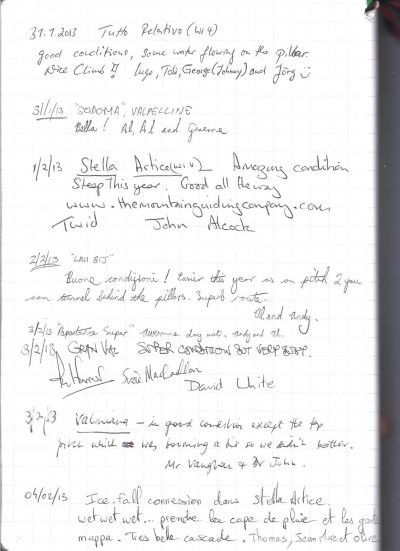 31.1.2013 Tutto Relativo (WI 4)
good conditions, some water flowing on the pillar.
Nice Climb!! Ingo, Tobi, George (Johnny) and Jörg ☺
31/1/13 "SODOMA", VALPELLINE
Bella! Al, Al and Graeme
1/2/13 Stella Artice (WI V) Amazing condition
Steep this year. Good all the way
www.themountainguidingcompany.com
Twid John Alcock
2/2/13 "LAU BIJ"
Buone condizioni! Easier this year as on pitch 2 you
can tunnel behind the pillars. Superb route.
Al and Andy.
3/2/13 "Repentance Super" Awesome day out. Andy and Al.
3/2/13 GRAN VAL SUPER CONDITION BUT VERY BUSY.
Susie MacLachlan
David White
3/2/13 Valmiana - in good condition except the top
pitch which was booming a bit so we didn't bother.
Mr Vaughan & Dr John.
04/02/13 Ice-fall connession dans Stella Artice.
wet wet wet... prendre la cape de pluie et les gants
mappa. Très belle cascade. Thomas, Sean